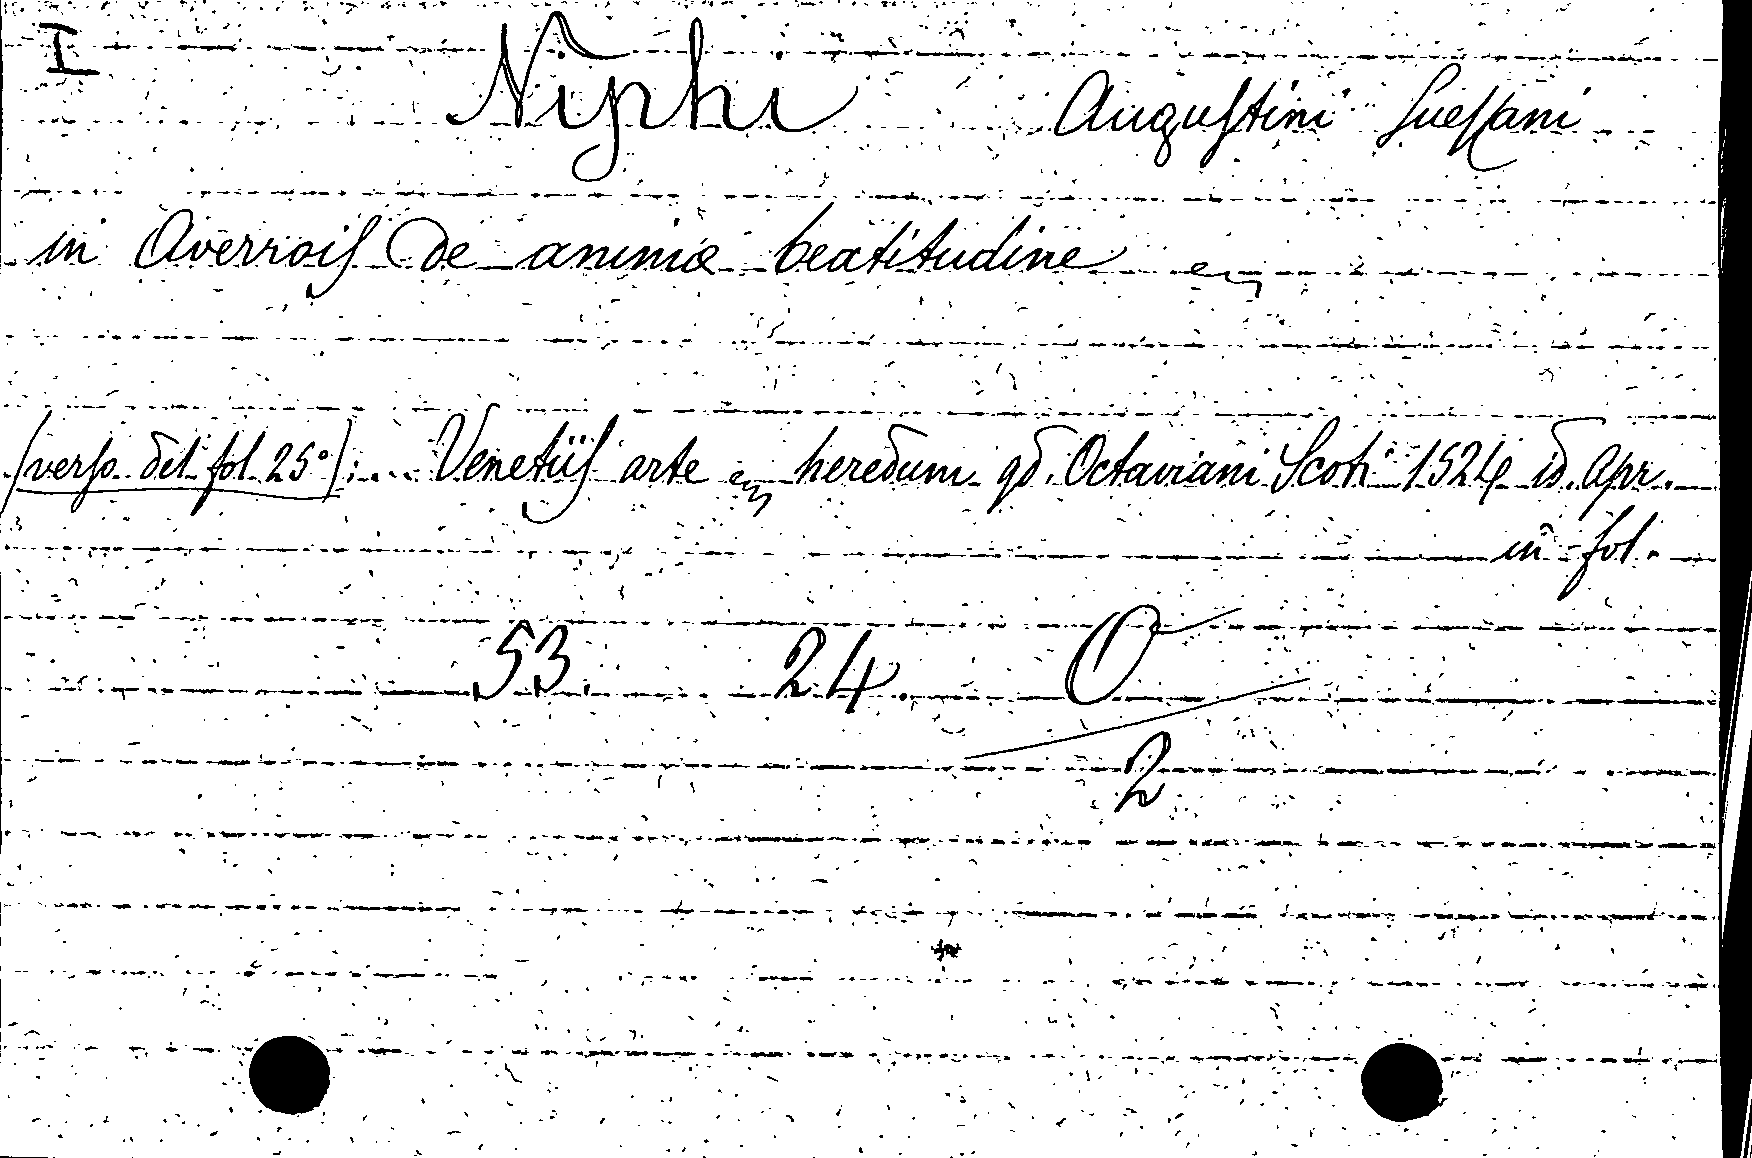 I Niphi Augustini Suessani
in Averrois De animæ beatitudine
(verso del fol. 25°): ... Venetiis arte heredum qd. Octaviani Scoti 1524 id. Apr.
in fol.
53. 24. O
2